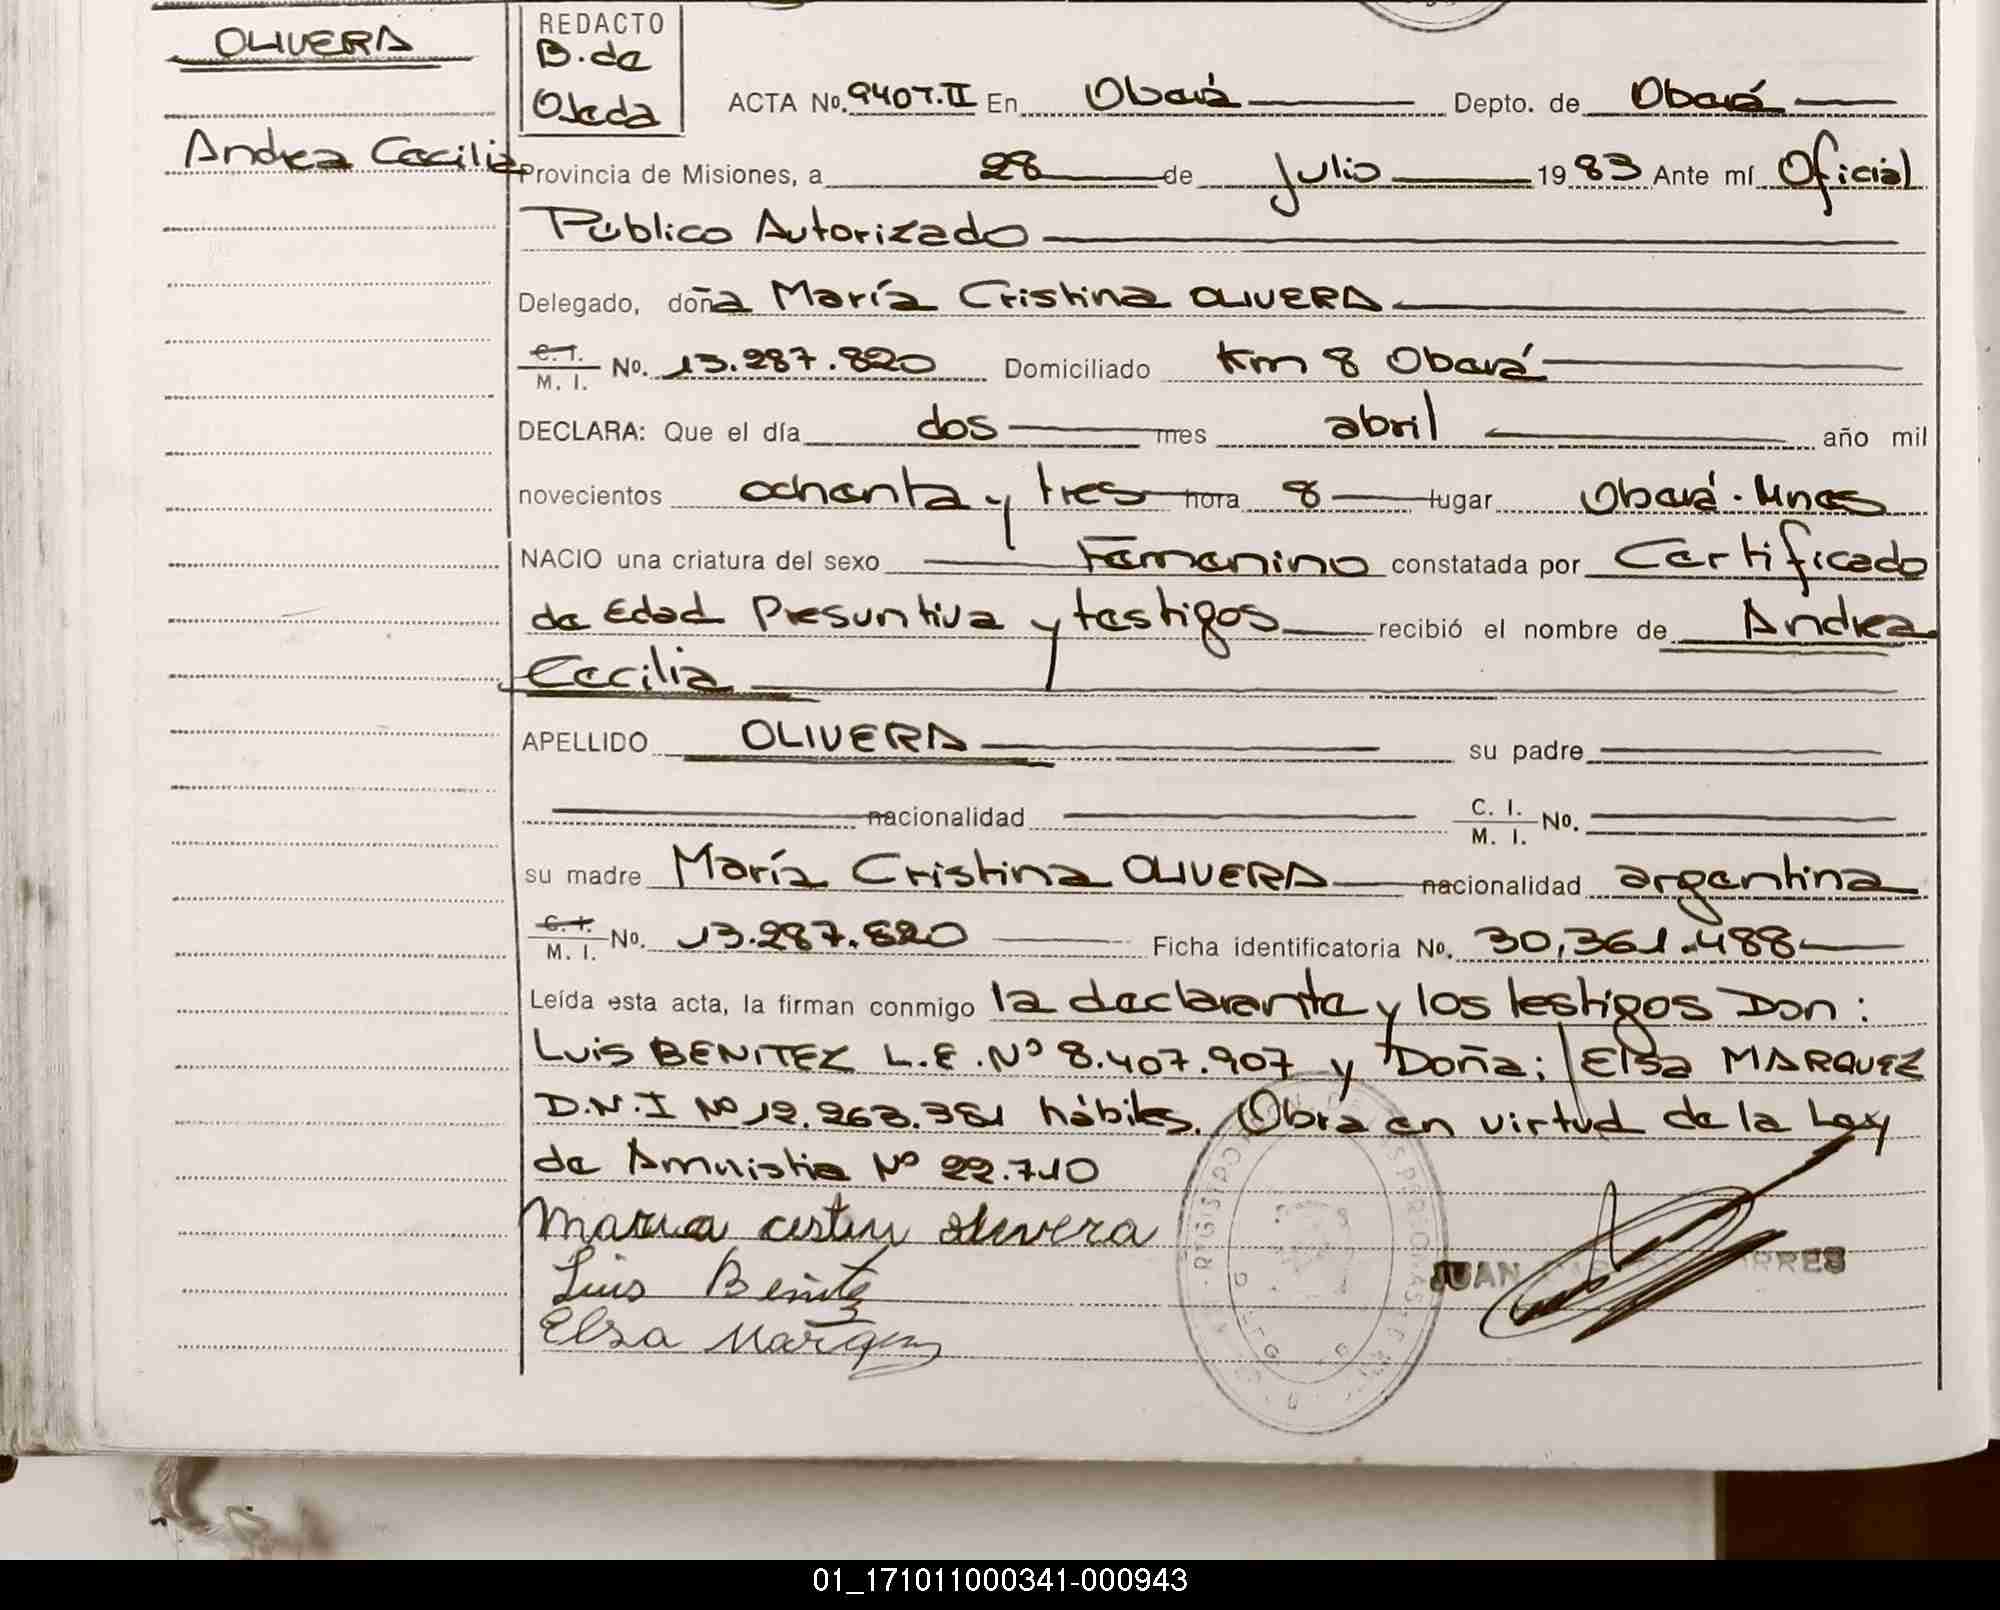 OLIVERA
Andrea Cecilia
REDACTO
B. de
Ojeda
ACTA No. 9407.II En Oberá Depto. de Oberá
Provincia de Misiones, a 28 de Julio 19 83 Ante mí Oficial
Público Autorizado
Delegado, doña María Cristina OLIVERA
C. I. / M. I. No. 13.287.820 Domiciliado Km 8 Oberá
DECLARA: Que el día dos mes abril año mil
novecientos ochenta y tres hora 8 lugar Oberá. Mnes
NACIO una criatura del sexo Femenino constatada por Certificado
de Edad Presuntiva y testigos recibió el nombre de Andrea
Cecilia
APELLIDO OLIVERA su padre
nacionalidad C. I. / M. I. No.
su madre María Cristina OLIVERA nacionalidad argentina
C. I. / M. I. No. 13.287.820 Ficha identificatoria No. 30,361.488
Leída esta acta, la firman conmigo la declarante y los testigos Don:
Luis BENITEZ L.E. Nº 8.407.907 y Doña: Elsa MARQUEZ
D.N.I Nº 12.263.381 hábiles. Obra en virtud de la Ley
de Amnistia Nº 22.710
Maria olivera
Luis Benitez
Elsa Marquez
JUAN
01_171011000341-000943